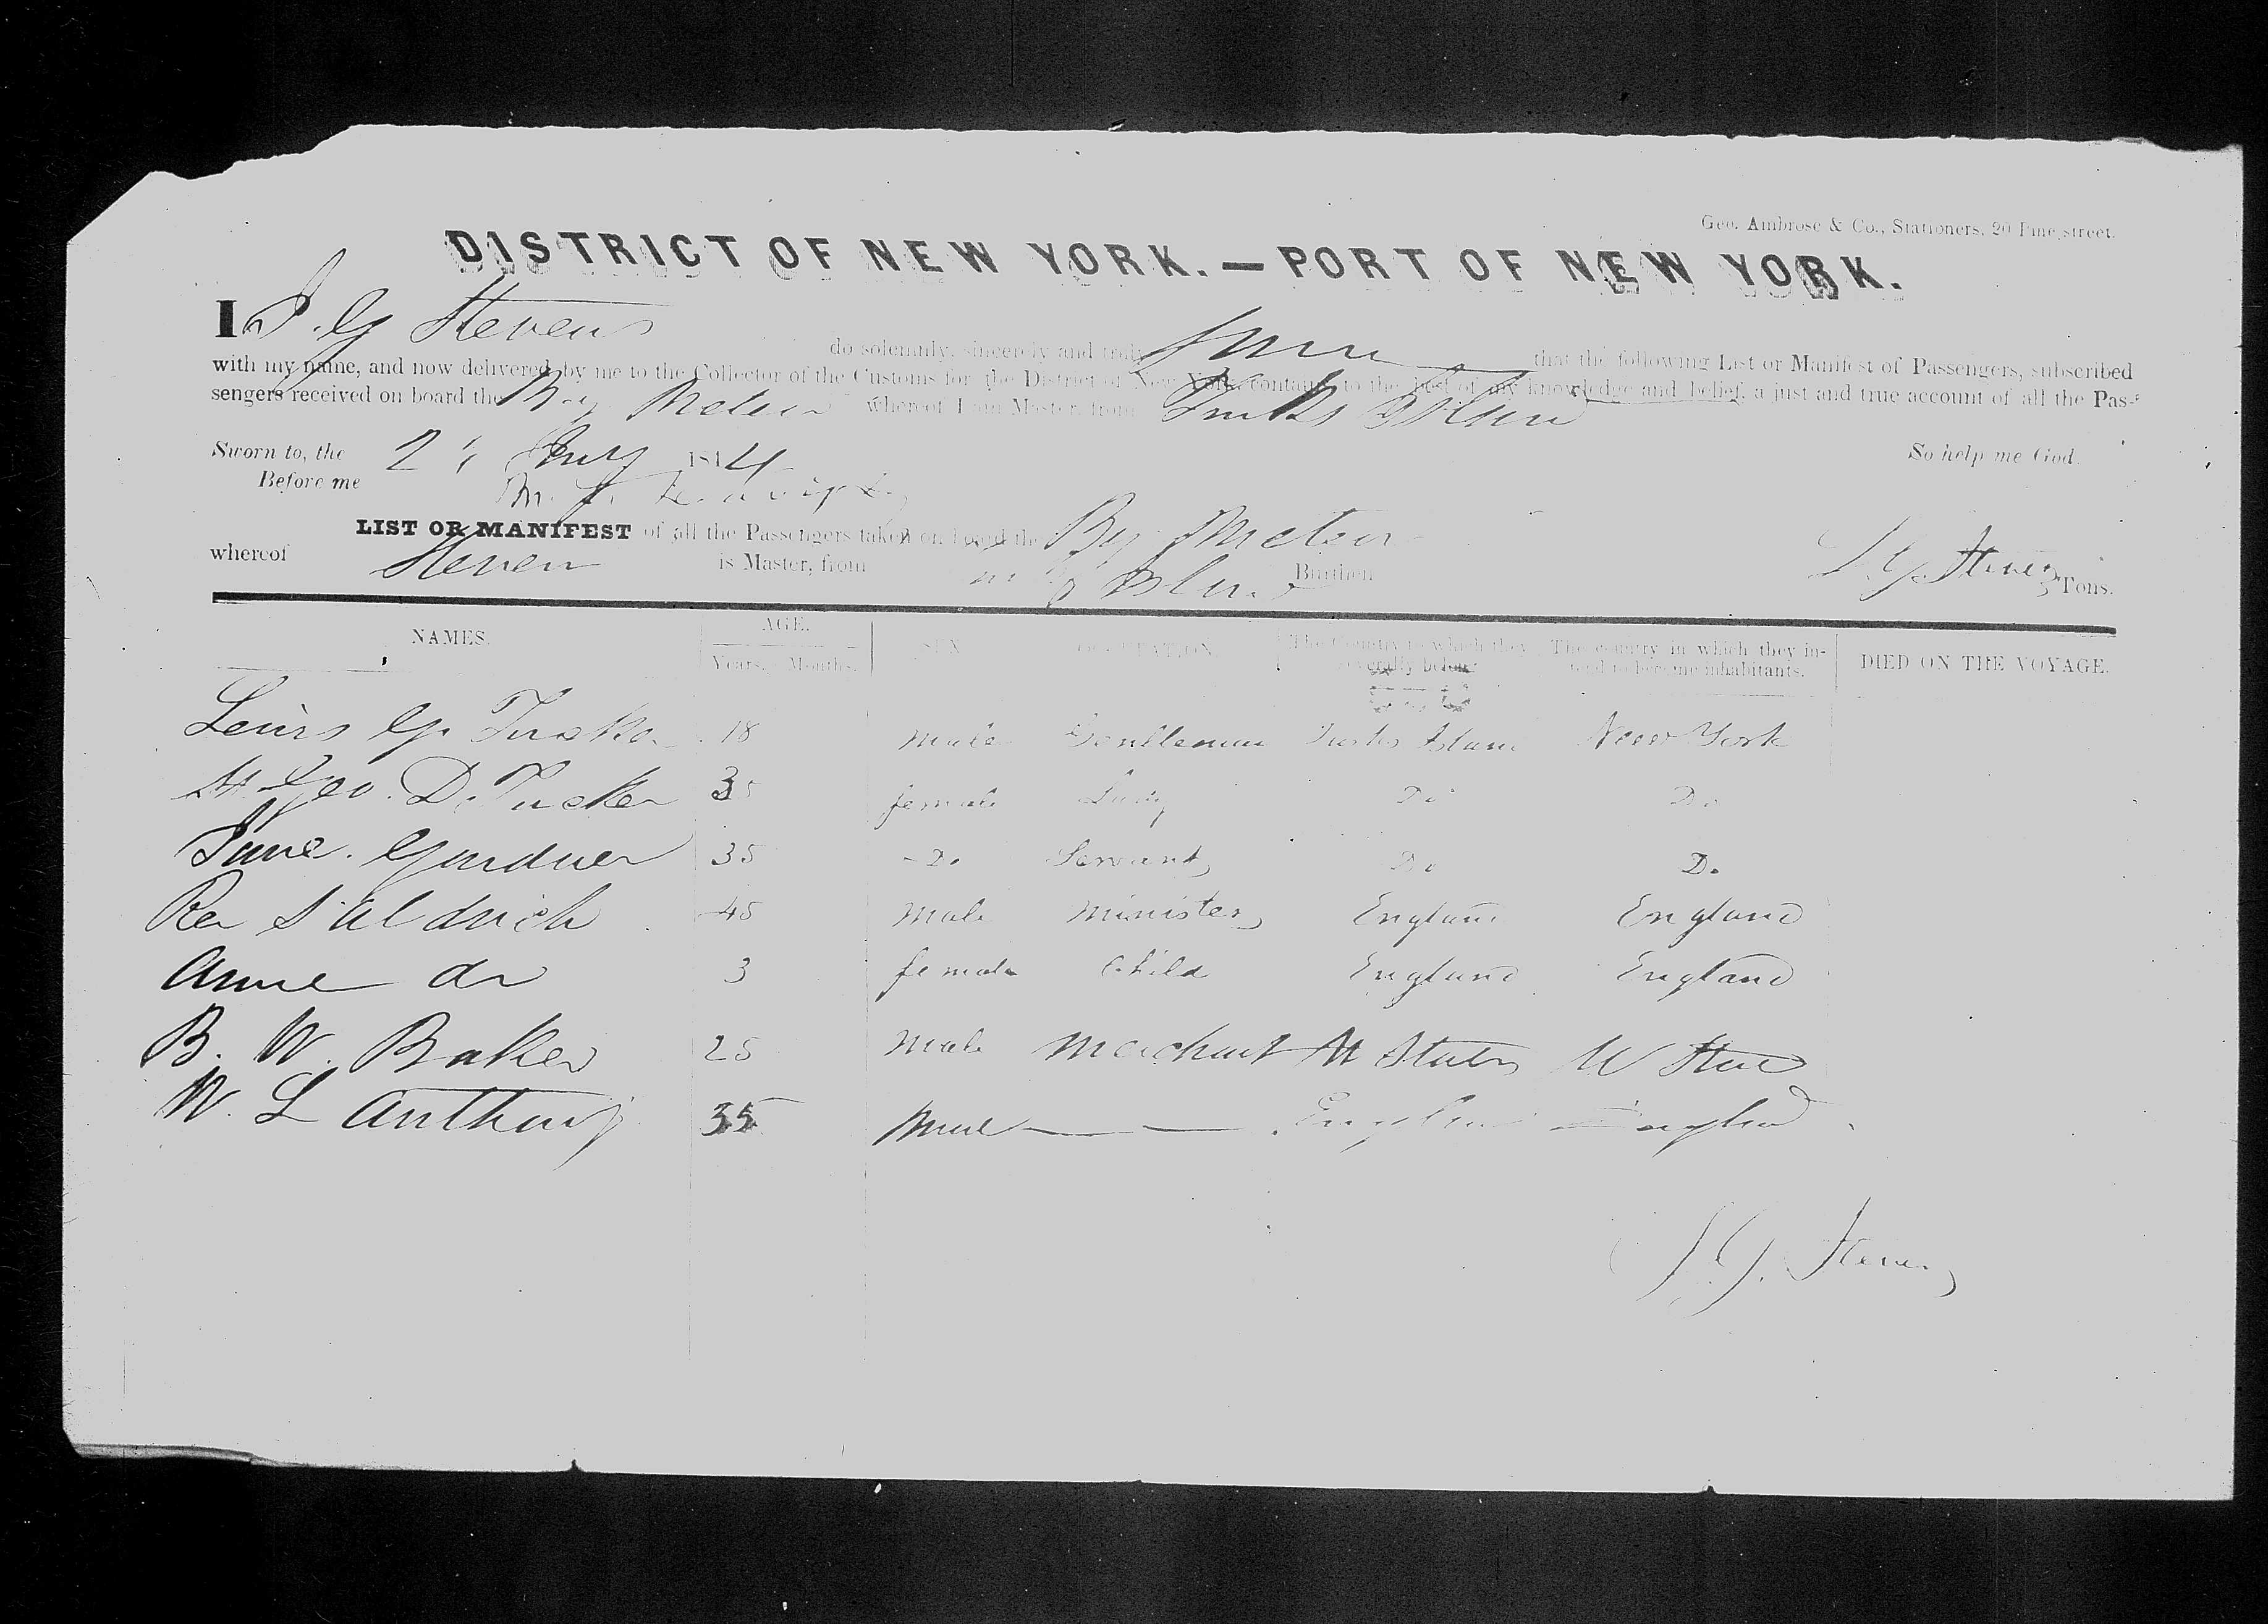 Geo. Ambrose & Co., Stationers, 20 Pine street.
DISTRICT OF NEW YORK.—PORT OF NEW YORK.
I S. G Stevens do solemnly, sincerely and truly swear that the following List or Manifest of Passengers, subscribed
with my name, and now delivered by me to the Collector of the Customs for the District of New York, contains to the best of my knowledge and belief, a just and true account of all the Pas-
sengers received on board the Brig Meteor whereof I am Master, from Turks Island
Sworn to, the 184 So help me God.
Before me
LIST OR MANIFEST of all the Passengers taken on board the Brig Meteor S. G. Stevens
whereof Steven is Master, from Burthen Tons.
NAMES. AGE. SEX OCCUPATION. The Country to which they severally belong The country in which they intend to become inhabitants. DIED ON THE VOYAGE.
Years, Months.
Lewis G. Tucker 18 male Gentleman Turks Island New York
Geo. D. Tucker 35 female Lady Do Do
Jane. Gardner 35 Do Servant Do Do
Rev S Aldrich 45 male minister England England
Anne do 3 female Child England England
B. W. Baker 25 male Merchant U States U States
W. L Anthony 35 male — — England England
S. G. Stevens